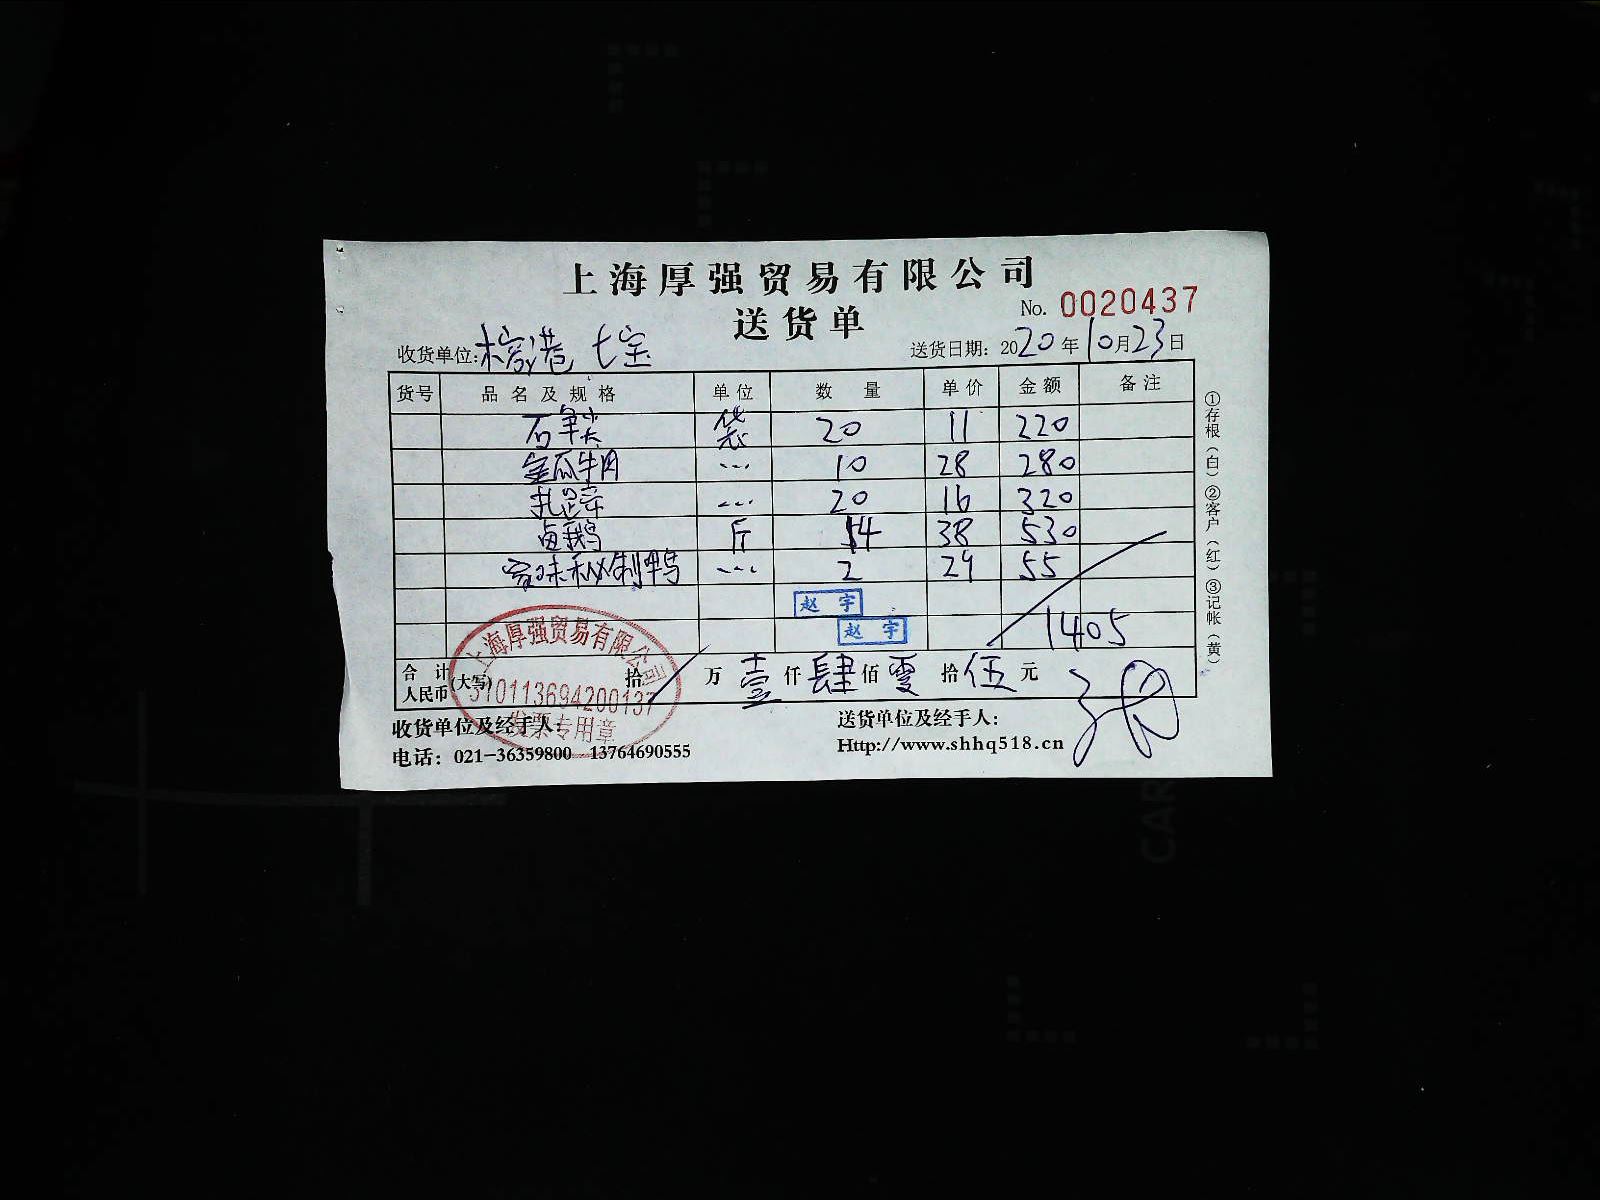 上海厚强贸易有限公司
送货单
No. 0020437
收货单位: 榕港 七宝
送货日期: 2020年10月23日
货号 品名及规格 单位 数量 单价 金额 备注
石笋尖 袋 20 11 220
金瓜牛肉 … 10 28 280
扎蹄 … 20 16 320
卤鹅 斤 14 38 530
家味秘制鸭 … 2 29 55
赵宇
赵宇
1405
合计人民币(大写) 拾 万 壹仟肆佰零拾伍元
上海厚强贸易有限公司
310113694200137
发票专用章
收货单位及经手人:
送货单位及经手人:
电话: 021-36359800 13764690555
Http://www.shhq518.cn
①存根(白)②客户(红)③记帐(黄)